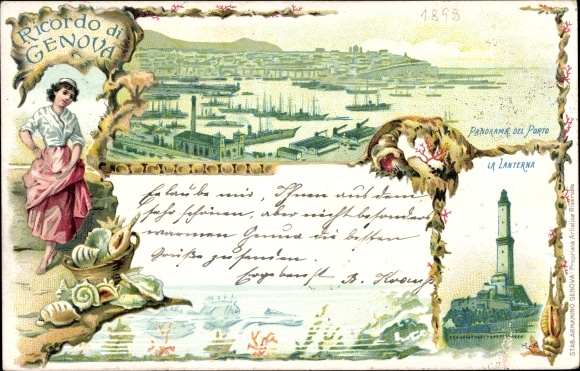 Ricordo di
GENOVA
1898
PANORAMA DEL PORTO
LA LANTERNA
Erlaube mir, Ihnen aus dem
sehr schönen, aber nicht besonders
warmen Genua die besten
Grüße zu senden.
Ergebenst B.
STAB. ARMANINO GENOVA. Proprietà Artistica Riservata